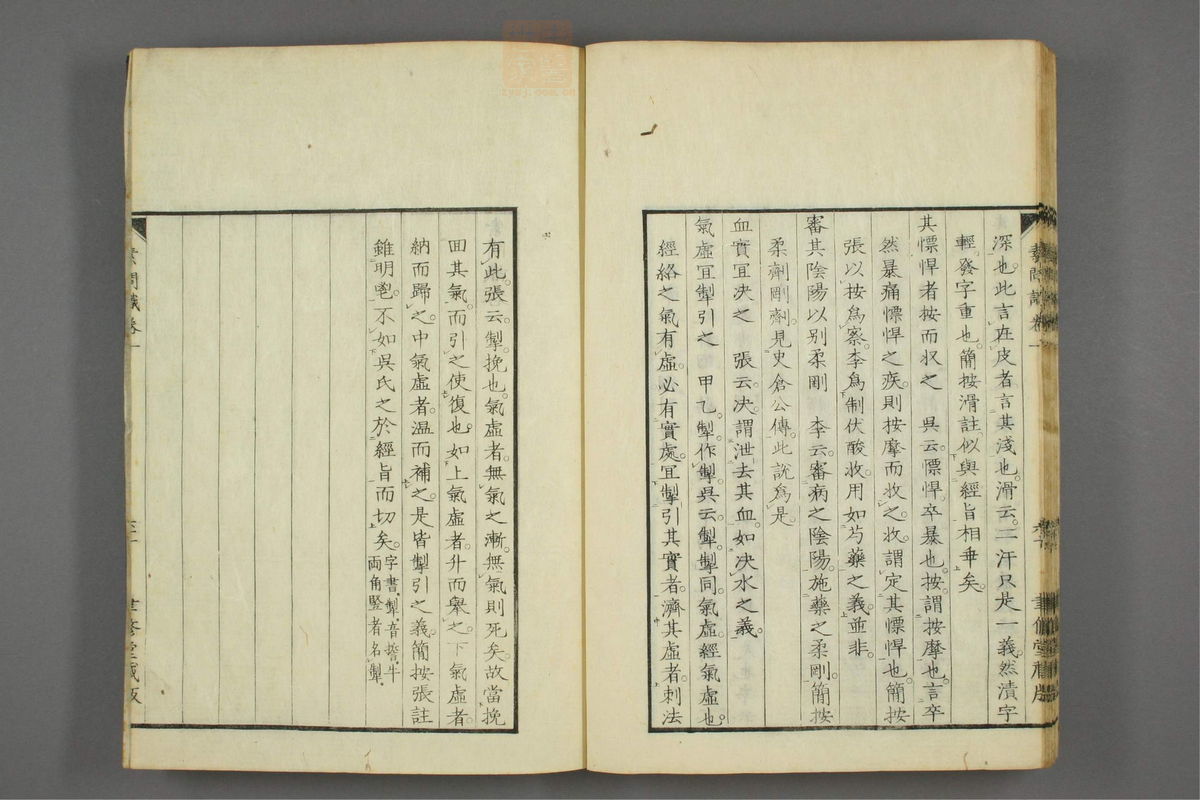 深也。此言在皮者言其淺也。滑云。二汗只是一義。然漬字
輕。發字重也。簡按滑註似與經旨相乖矣。
其慓悍者按而收之　吳云。慓悍。卒暴也。按。謂按摩也。言卒
然暴痛慓悍之疾。則按摩而收之。收。謂定其慓悍也。簡按
張以按爲察。李爲制伏酸收用如芍藥之義。並非。
審其陰陽以別柔剛　李云。審病之陰陽。施藥之柔剛。簡按
柔劑剛劑。見史倉公傳。此說爲是。
血實宜決之　張云。決。謂泄去其血。如決水之義。
氣虛宜掣引之　甲乙。掣。作㨖。吳云。掣。㨖同。氣虛。經氣虛也。
經絡之氣有虛。必有實處。宜掣引其實者。濟其虛者。刺法
有此。張云。掣。挽也。氣虛者。無氣之漸。無氣則死矣。故當挽
回其氣。而引之使復也。如上氣虛者。升而舉之。下氣虛者。
納而歸之。中氣虛者。溫而補之。是皆掣引之義。簡按張註
雖明鬯。不如吳氏之於經旨而切矣。字書。掣音㨖。牛
兩角竪者名掣。
素問識卷一
聿修堂藏版